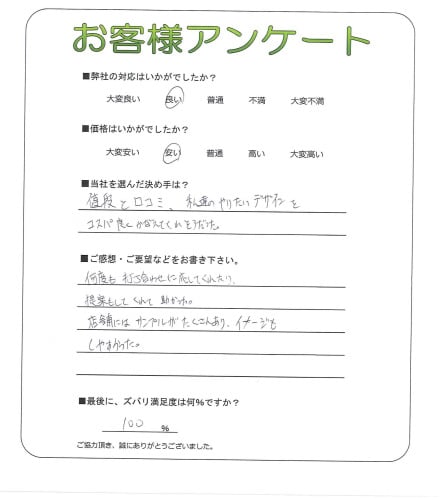 お客様アンケート
■弊社の対応はいかがでしたか？
大変良い 良い 普通 不満 大変不満
■価格はいかがでしたか？
大変安い 安い 普通 高い 大変高い
■当社を選んだ決め手は？
値段と口コミ、私達のやりたいデザインを
コスパ良くかなえてくれそうだった。
■ご感想・ご要望などをお書き下さい。
何度も打ち合わせに応してくれたり、
提案もしてくれて助かった。
店舗にはサンプルがたくさんあり、イメージも
しやすかった。
■最後に、ズバリ満足度は何％ですか？
100 ％
ご協力頂き、誠にありがとうございました。